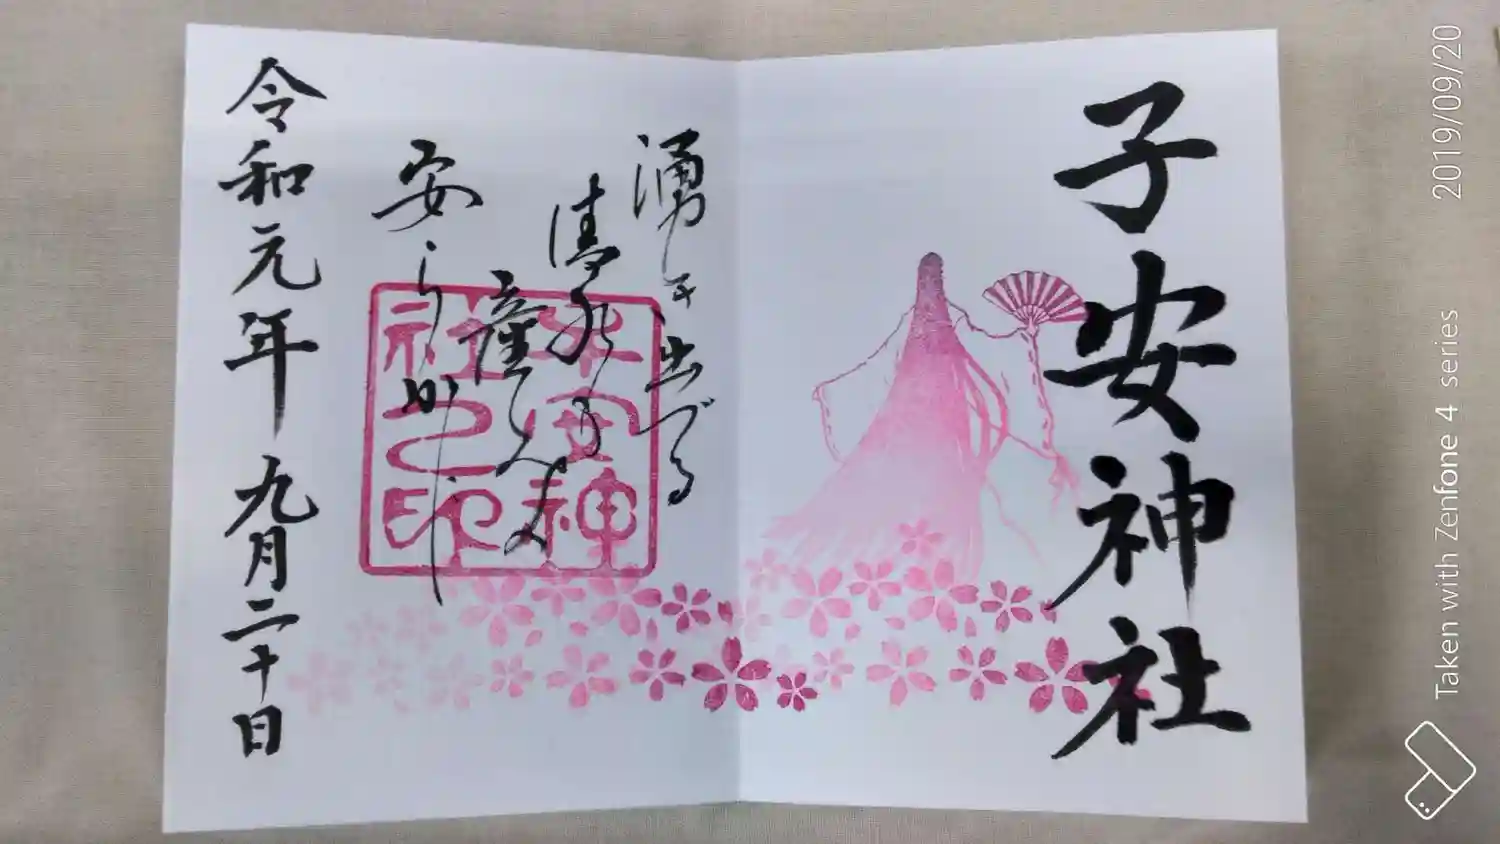 子安神社
湧き出づる
清水の子
安らかに
令和元年九月二十日
子安神
社之印
Taken with Zenfone 4 series 2019/09/20